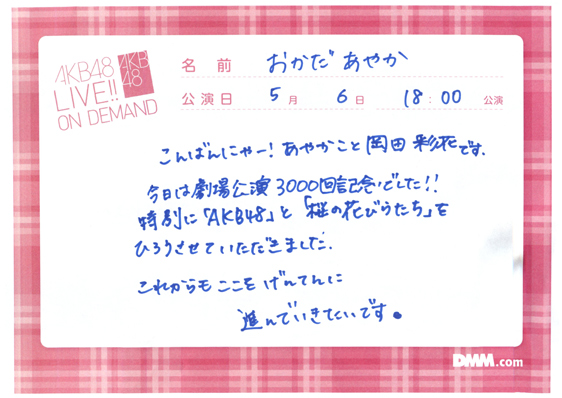 AKB48
LIVE!!
ON DEMAND
AKB
48
名前 おかだ あやか
公演日 5月 6日 18:00 公演
こんばんにゃー! あやかこと 岡田 彩花です。
今日は劇場公演 3000回記念でした!!
特別に「AKB48」と「桜の花びらたち」を
ひろうさせていただきました。
これからも ここを げんてんに
進んでいきたいです。
DMM.com